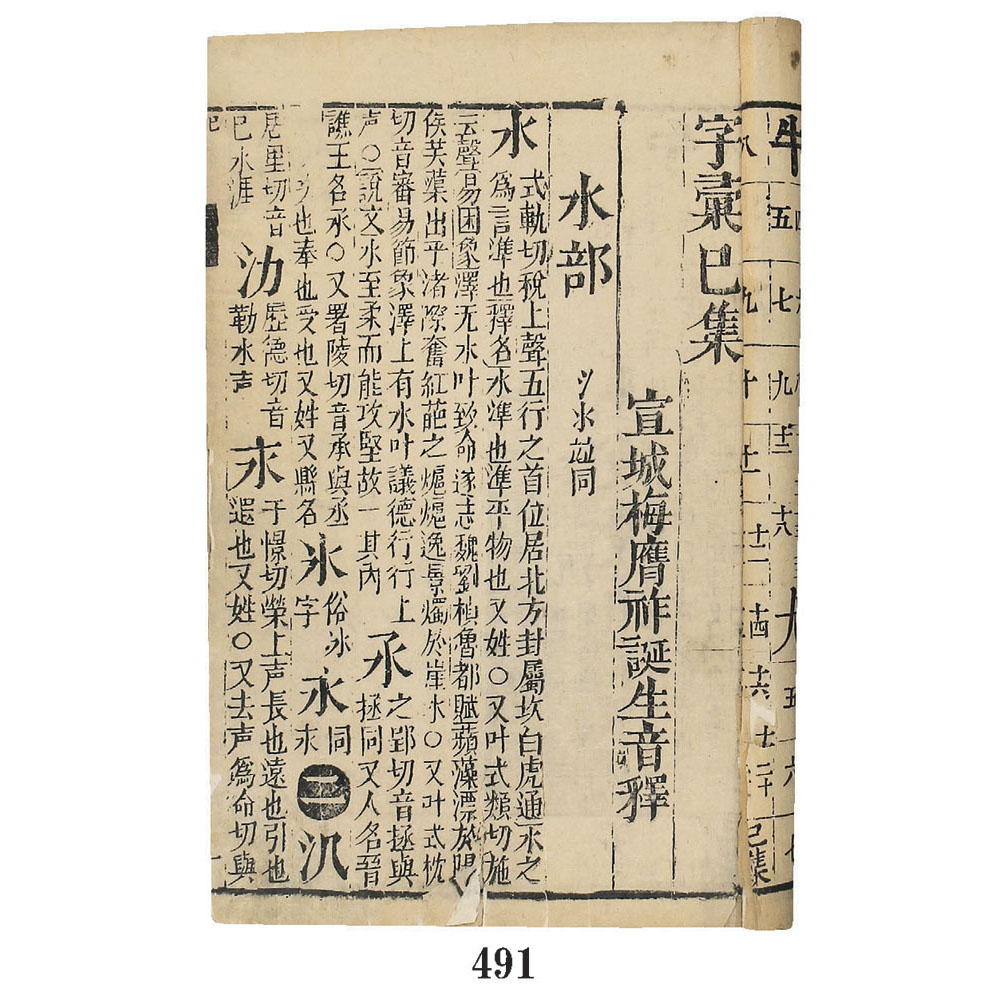 牛
五
七
九
字彙巳集
宣城梅膺祚誕生音釋
水部 氵氺並同
水 式軌切稅上聲五行之首位居北方封屬坎白虎通水之
爲言準也釋名水準也準平物也又姓○又叶式類切施
去聲易困象澤无水叶致命遂志魏劉楨魯都賦蘋藻漂於陽
侯芙蕖出乎渚際奮紅葩之熝熝逸景燭於崖水○又叶式枕
切音審易節象澤上有水叶議德行行上
声○說文水至柔而能攻堅故一其內 氶 之郢切音拯與
拯同又人名晉
譙王名氶○又署陵切音承與丞
同也奉也受也又姓又縣名 氷 俗冰
字 永 同
求 二 氿
居里切音
巳水涯 氻 歷德切音
勒水声 永 于憬切榮上声長也遠也引也
遐也又姓○又去声爲命切與
巳集
491